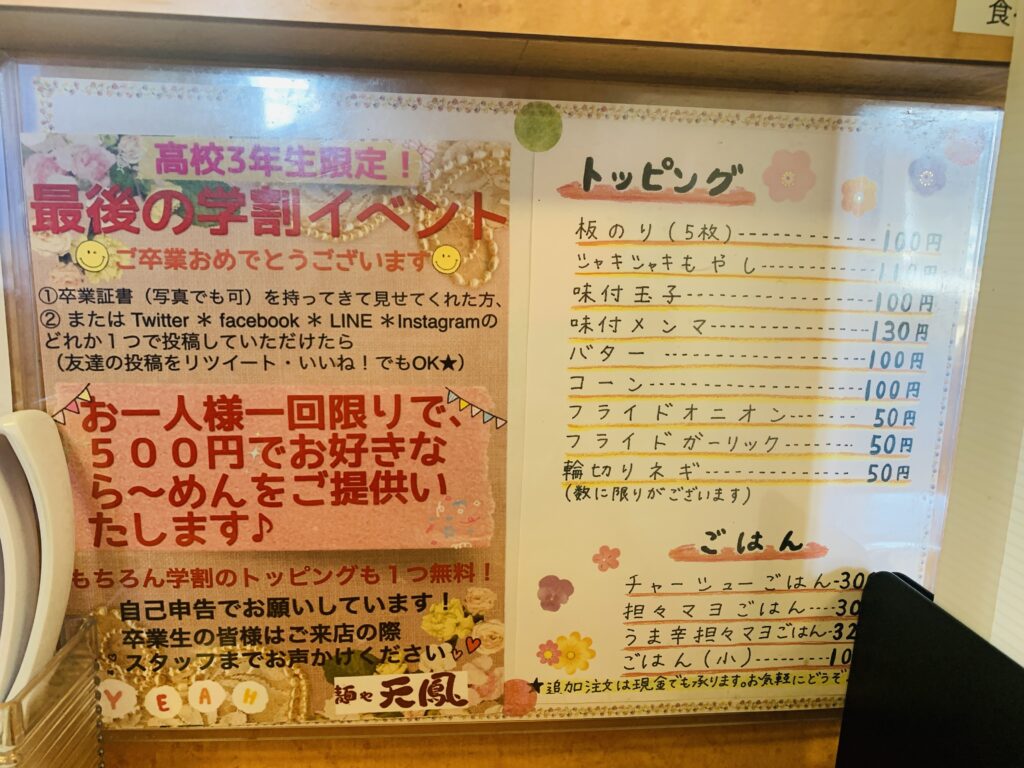 食
高校3年生限定!
最後の学割イベント
ご卒業おめでとうございます
①卒業証書(写真でも可)を持ってきて見せてくれた方、
② または Twitter * facebook * LINE *Instagramの
どれか1つで投稿していただけたら
(友達の投稿をリツイート・いいね!でもOK★)
お一人様一回限りで、
500円でお好きな
ら~めんをご提供い
たします♪
もちろん学割のトッピングも1つ無料!
自己申告でお願いしています!
卒業生の皆様はご来店の際
スタッフまでお声かけください
YEAH
麺や 天鳳
トッピング
板のり(5枚)----------100円
シャキシャキもやし----------110円
味付玉子----------100円
味付メンマ----------130円
バター ----------100円
コーン----------100円
フライドオニオン------50円
フライドガーリック------50円
輪切りネギ----------50円
(数に限りがございます)
ごはん
チャーシューごはん-30
担々マヨごはん----30
うま辛担々マヨごはん--32
ごはん(小)--------10
★追加注文は現金でも承ります。お気軽にどうぞ